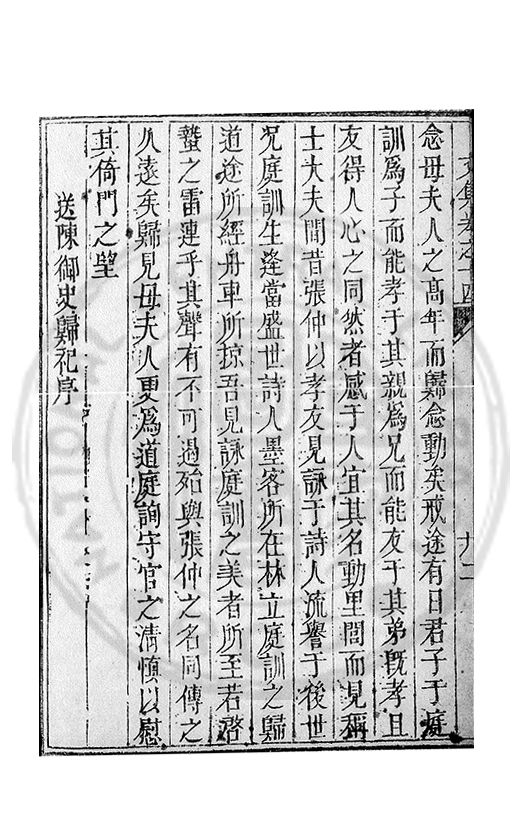 文集卷之十四
十二
念母夫人之高年而歸念動矣戒途有日君子于庭
訓爲子而能孝于其親爲兄而能友于其弟旣孝且
友得人心之同然者感于人宜其名動里閭而見稱
士大夫間昔張仲以孝友見詠于詩人流譽于後世
況庭訓生逢當盛世詩人墨客所在林立庭訓之歸
道途所經舟車所掠吾見詠庭訓之美者所至若啓
蟄之雷連乎其聲有不可遏殆與張仲之名同傳之
久遠矣歸見母夫人更爲道庭詢守官之清慎以慰
其倚門之望
送陳御史歸祀序